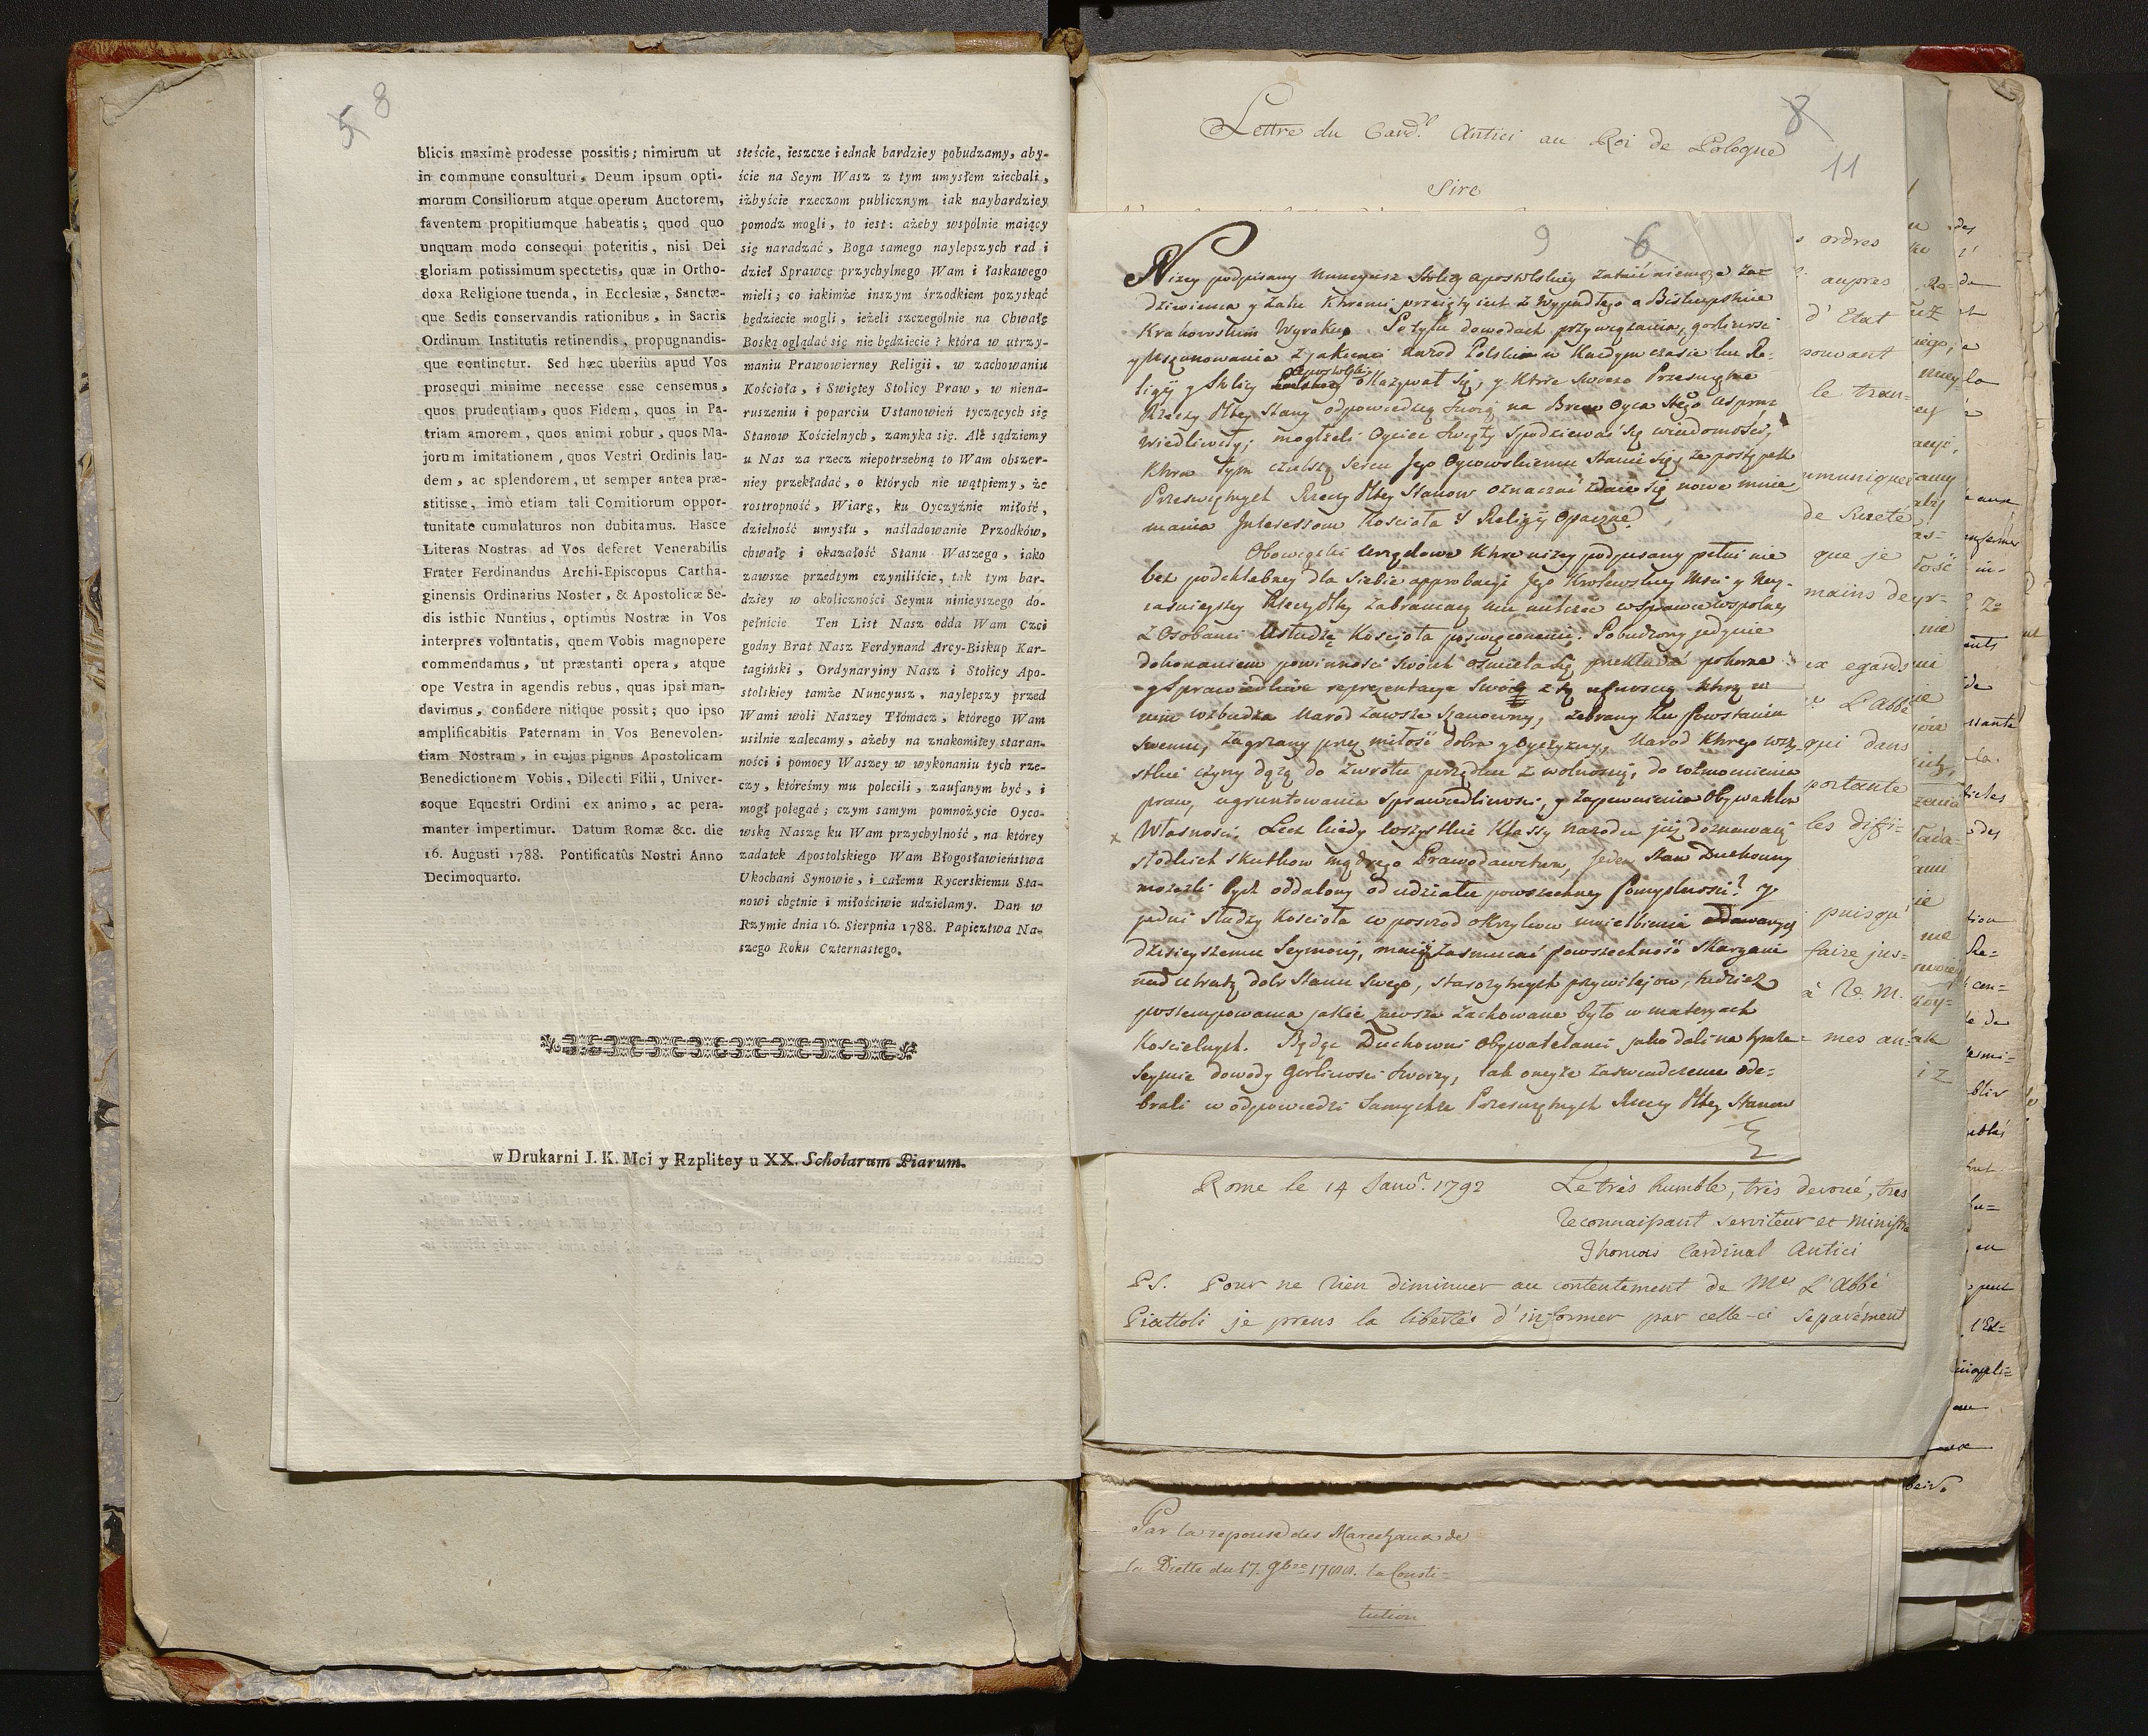 5 8
blicis maximè prodesse possitis; nimirum ut
in commune consulturi, Deum ipsum opti-
morum Consiliorum atque operum Auctorem,
faventem propitiumque habeatis; quod quo
unquam modo consequi poteritis, nisi Dei
gloriam potissimum spectetis, quæ in Ortho-
doxa Religione tuenda, in Ecclesiæ, Sanctæ-
que Sedis conservandis rationibus, in Sacris
Ordinum Institutis retinendis, propugnandis-
que continetur. Sed hæc uberiùs apud Vos
prosequi minime necesse esse censemus,
quos prudentiam, quos Fidem, quos in Pa-
triam amorem, quos animi robur, quos Ma-
jorum imitationem, quos Vestri Ordinis lau-
dem, ac splendorem, ut semper antea præ-
stitisse, imò etiam tali Comitiorum oppor-
tunitate cumulaturos non dubitamus. Hasce
Literas Nostras ad Vos deferet Venerabilis
Frater Ferdinandus Archi-Episcopus Cartha-
ginensis Ordinarius Noster, & Apostolicæ Se-
dis isthic Nuntius, optimus Nostræ in Vos
interpres voluntatis, quem Vobis magnopere
commendamus, ut præstanti opera, atque
ope Vestra in agendis rebus, quas ipsi man-
davimus, confidere nitique possit; quo ipso
amplificabitis Paternam in Vos Benevolen-
tiam Nostram, in cujus pignus Apostolicam
Benedictionem Vobis, Dilecti Filii, Univer-
soque Equestri Ordini ex animo, ac pera-
manter impertimur. Datum Romæ &c. die
16. Augusti 1788. Pontificatûs Nostri Anno
Decimoquarto.
steście, ieszcze iednak bardziey pobudzamy, aby-
ście na Seym Wasz z tym umysłem ziechali,
iżbyście rzeczom publicznym iak naybardziey
pomodz mogli, to iest: ażeby wspólnie maiący
się naradzać, Boga samego naylepszych rad i
dzieł Sprawcę przychylnego Wam i łaskawego
mieli; co iakimże inszym śrzodkiem pozyskać
będziecie mogli, ieżeli szczególnie na Chwałę
Boską oglądać się nie będziecie? która w utrzy-
maniu Prawowierney Religii, w zachowaniu
Kościoła, i Swiętey Stolicy Praw, w niena-
ruszeniu i poparciu Ustanowień tyczących się
Stanow Kościelnych, zamyka się. Ale sądziemy
u Nas za rzecz niepotrzebną to Wam obszer-
niey przekładać, o których nie wątpiemy, że
rostropność, Wiarę, ku Oyczyźnie miłość,
dzielność umysłu, naśladowanie Przodków,
chwałę i okazałość Stanu Waszego, iako
zawsze przedtym czyniliście, tak tym bar-
dziey w okoliczności Seymu ninieyszego do-
pełnicie Ten List Nasz odda Wam Czci
godny Brat Nasz Ferdynand Arcy-Biskup Kar-
tagiński, Ordynaryiny Nasz i Stolicy Apo-
stolskiey tamże Nuncyusz, naylepszy przed
Wami woli Naszey Tłómacz, którego Wam
usilnie zalecamy, ażeby na znakomitey staran-
ności i pomocy Waszey w wykonaniu tych rze-
czy, któreśmy mu polecili, zaufanym być, i
mogł polegać; czym samym pomnożycie Oyco-
wską Naszę ku Wam przychylność, na którey
zadatek Apostolskiego Wam Błogosławieństwa
Ukochani Synowie, i całemu Rycerskiemu Sta-
nowi chętnie i miłościwie udzielamy. Dan w
Rzymie dnia 16. Sierpnia 1788. Papieztwa Na-
szego Roku Czternastego.
w Drukarni J. K. Mci y Rzplitey u XX. Scholarum Piarum.
8
Lettre du Card.l Antici au Roi de Pologne
11
Sire
9 6
Nizey podpisany Nuncyusz Stolicy Apostolskiey zataić niemoże za-
dziwienia y zalu któremi przeięty iest z wypadłego o Biskupstwie
Krakowskim Wyroku. Po tylu dowodach przywiązania, gorliwości
y uszanowania z jakiemi Narod Polski w Kazdym czasie ku Re-
ligij y Stolicy Apostolskiey okazywał się, y ktore swoeza Przeswietne
Rzeczy Pltey Stany odpowiedzią swoią na Breve Oyca Stego usprawie-
wiedliwiły; mogłzeli Ociec Swięty spodziewać się wiadomości,
Ktora tym czulszą sercu Jego Oycowskiemu stanie się, że postępek
Przeswiętnych Rzeczy Pltey Stanow oznaczać zdaie się nowe mnie-
mania Interessom Kościoła y Religij opaczne?
Obowiązki Urzędowe ktore nizey podpisany pełni nie
bez podchlebney dla siebie approbacyi Jego Krolewskiey Msci y Nay-
iasnieyszey Rzeczy Pltey zabraniaią mu milczeć w sprawie wspolney
z Osobami Usłudze Kościoła poswięconemi. Pobudzony jedynie
dokonaniem powinności swoich osmiela się przekładać pokorne
y sprawiedliwe reprezentacye swoie z tą ufnoscią ktorą w
nim wzbudza Narod zawsze szanowny, zebrany ku powstaniu
swemu, zagrzany przez miłość dobra y Oyczyzny, Narod ktorego wszy-
stkie czyny dążą do zwrotu porządku z wolnoscią, do wzmocnienia
praw, ugruntowania sprawiedliwości, y zapewnienia Obywatelom
Własności. Lecz kiedy wszystkie Klassy narodu już doznawaią
słodkich skutkow mądrego Prawodawctwa, jeden Stan Duchowny
możeli bydź oddalony od udziału powszechney Pomyslności? y
jedni słudzy Kościoła w posrzod okrzykow uwielbienia oddawanych
dzisieyszemu Seymowi, maią zasmucać powszechność skargami
nad utratą dobr Stanu swego, starozytnych przywilejow, tudziesz
postempowania jakie zawsze zachowane było w materyach
Koscielnych. Będąc Duchowni Obywatelami jako dali na tymże
Seymie dowody gorliwości swoiey, tak onegże zaswiadczenie ode-
brali w odpowiedzi samychże Przeswiętnych Rzeczy Pltey Stanow
s ordres
aupres
d' Etat
pouvant
le tran-
mmunique
de Sureté
que je
mains de
x egards
r. L'Abbé
qui dans
portante
les diffi-
puisqu'
faire jus-
à V. M.
mes an-
Rome le 14 Janv.r 1792 Le très humble, très devoué, très
reconnaissant serviteur et ministre
Thomas Cardinal Antici
PS. Pour ne rien diminuer au contentement de Mr L'Abbé
Piattoli je prens la libertés d'informer par celle-ci séparément
Par la reponse des Marechaux de
la Diette du 17. 9bre 1788. la Consti-
tution